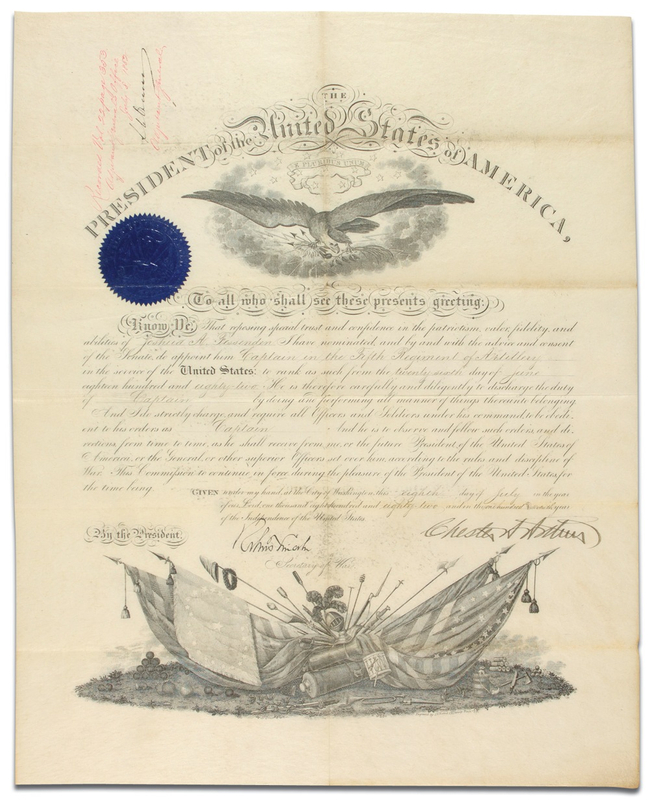 THE
PRESIDENT of the United States of AMERICA,
E PLURIBUS UNUM
To all who shall see these presents greeting:
Know Ye, That reposing special trust and confidence in the patriotism, valor, fidelity, and
abilities of Joshua A. Fessenden I have nominated, and by and with the advice and consent
of the Senate, do appoint him Captain in the Fifth Regiment of Artillery
in the service of the United States: to rank as such from the day of June
eighteen hundred and eighty two He is therefore carefully and diligently to discharge the duty
of Captain by doing and performing all manner of things thereunto belonging.
And I do strictly charge, and require all Officers and Soldiers under his command to be obedi-
ent to his orders as Captain And he is to observe and follow such orders, and di-
rections, from time to time, as he shall receive from me, or the future President of the United States of
America, or the General, or other superior Officers set over him, according to the rules and discipline of
War. This Commission to continue in force during the pleasure of the President of the United States, for
the time being.
GIVEN under my hand, at the City of Washington, this eighth day of July in the year
of our Lord, one thousand eight hundred and eighty two and in the one hundred and year
of the Independence of the United States.
By the President:
Chester A Arthur
Secretary of War.